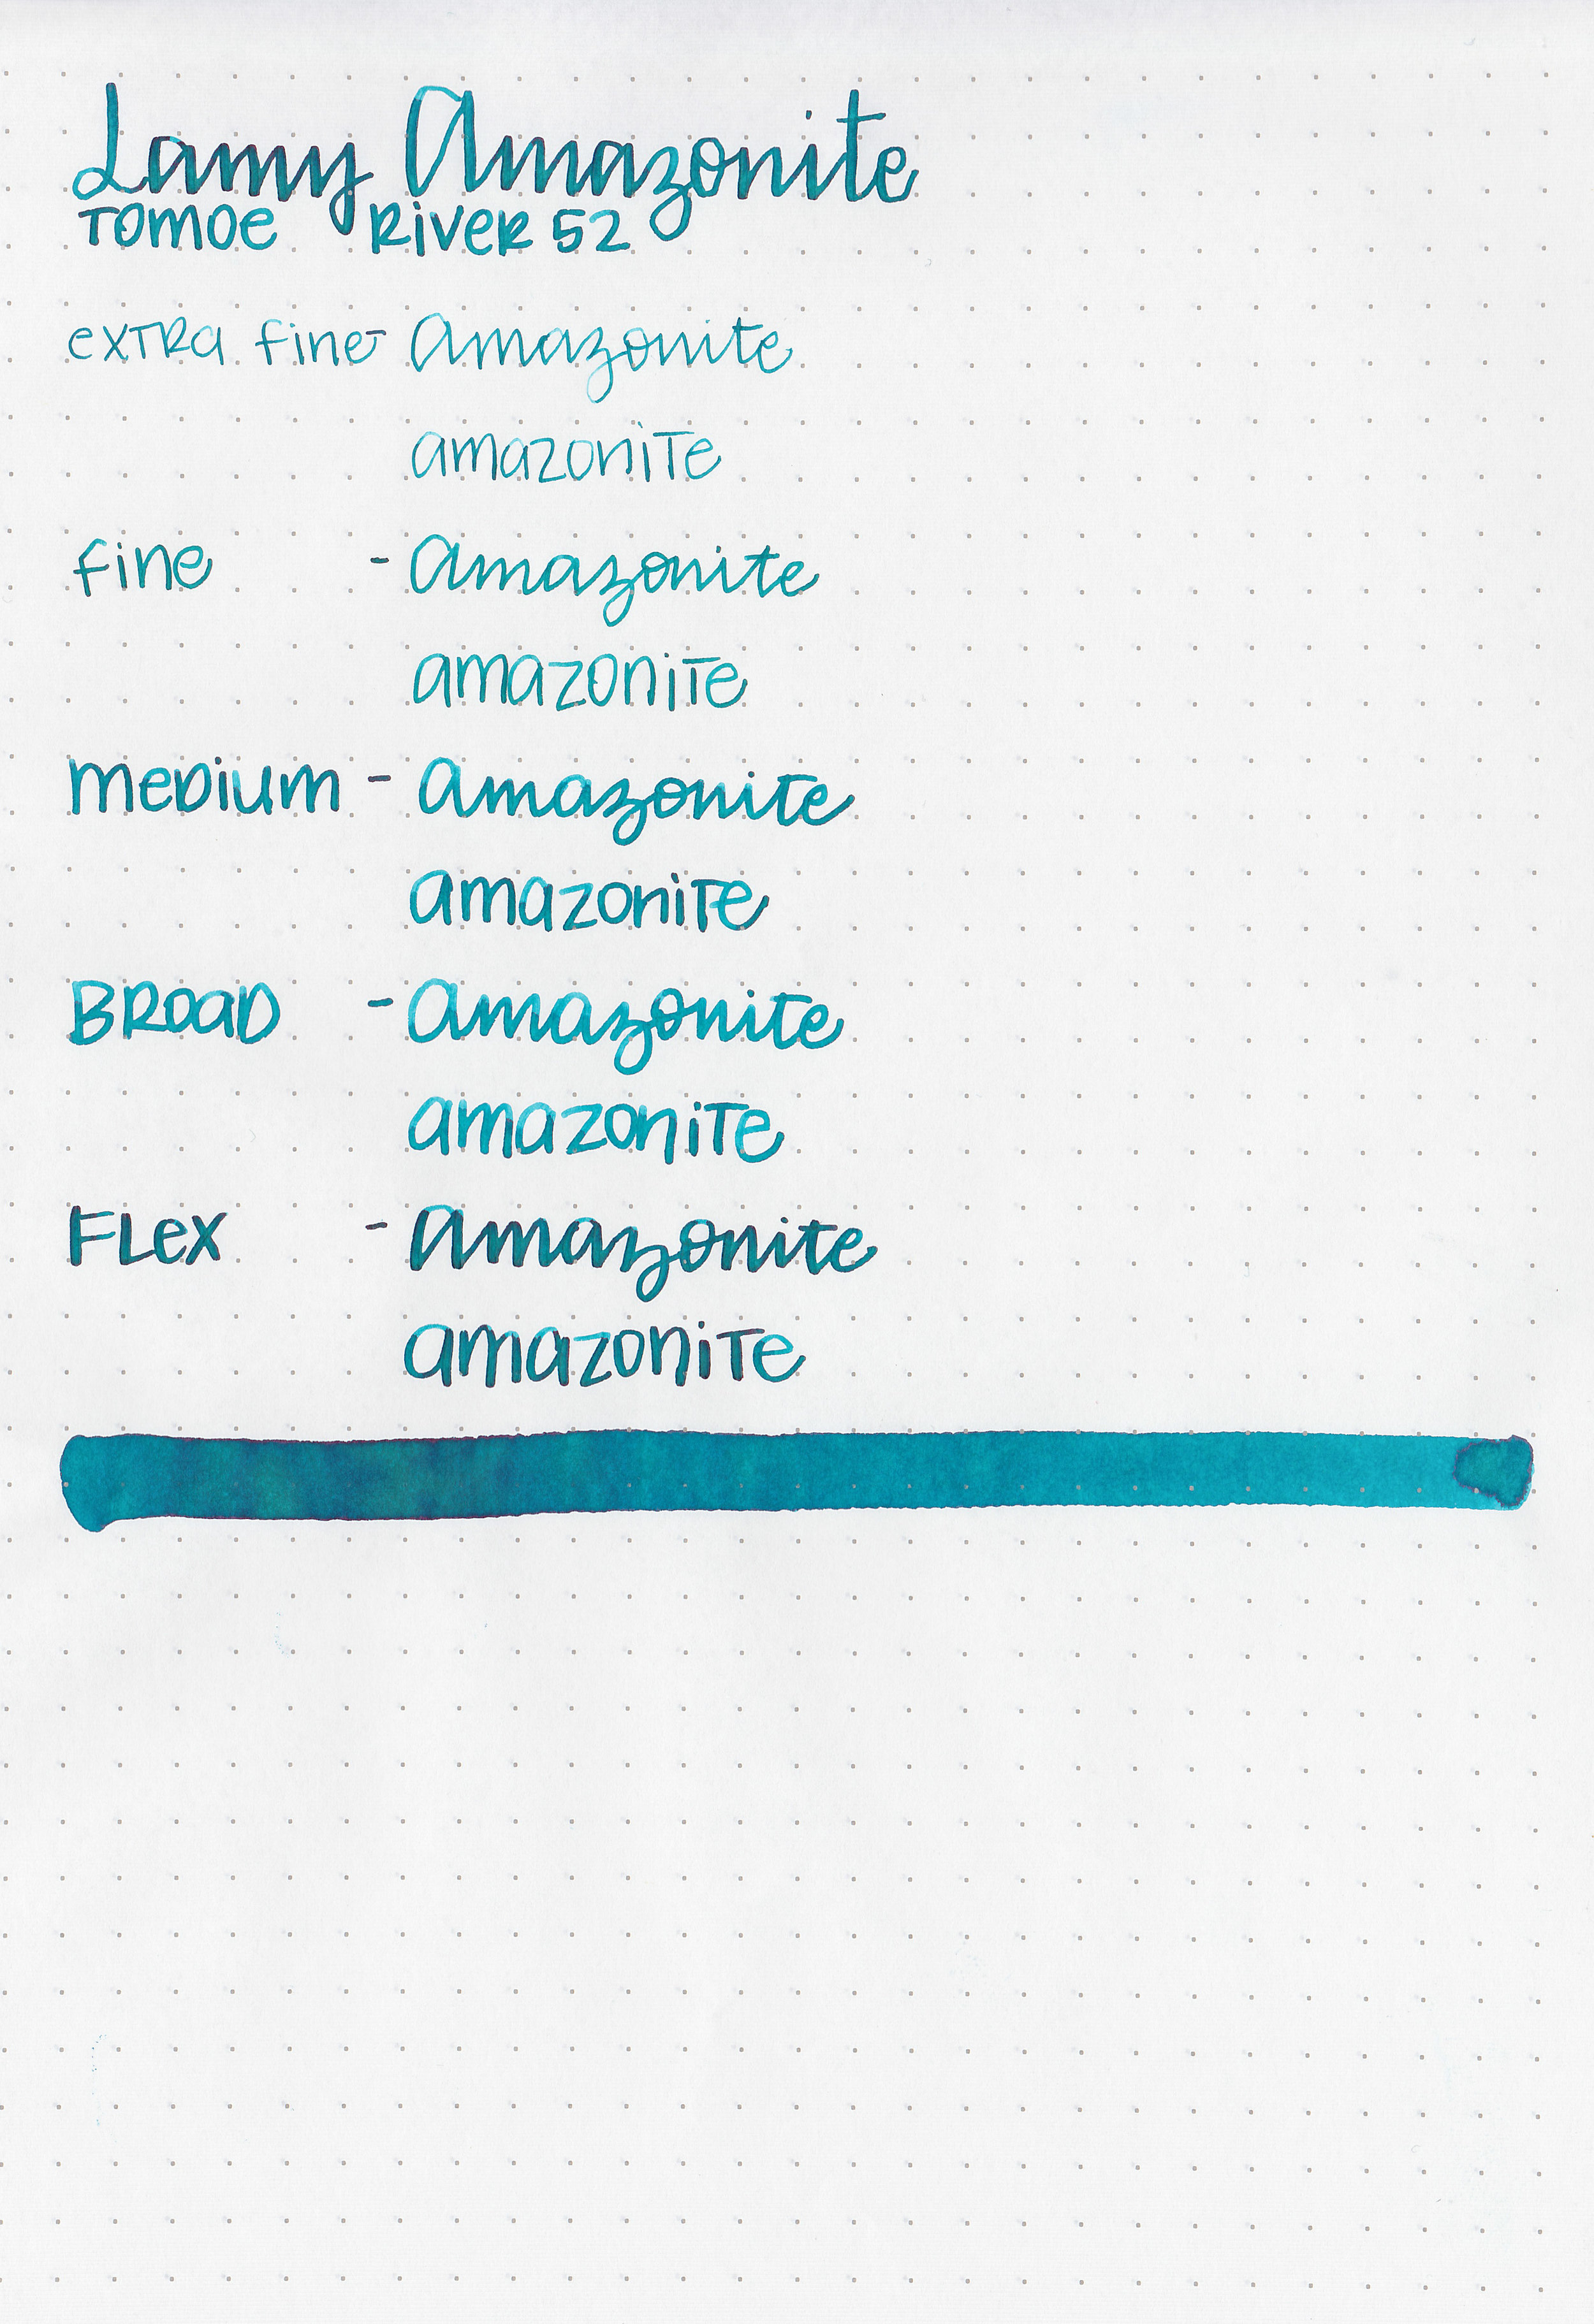 Lamy Amazonite
Tomoe River 52
extra fine - Amazonite
amazonite
fine - Amazonite
amazonite
medium - Amazonite
amazonite
Broad - Amazonite
amazonite
Flex - Amazonite
amazonite